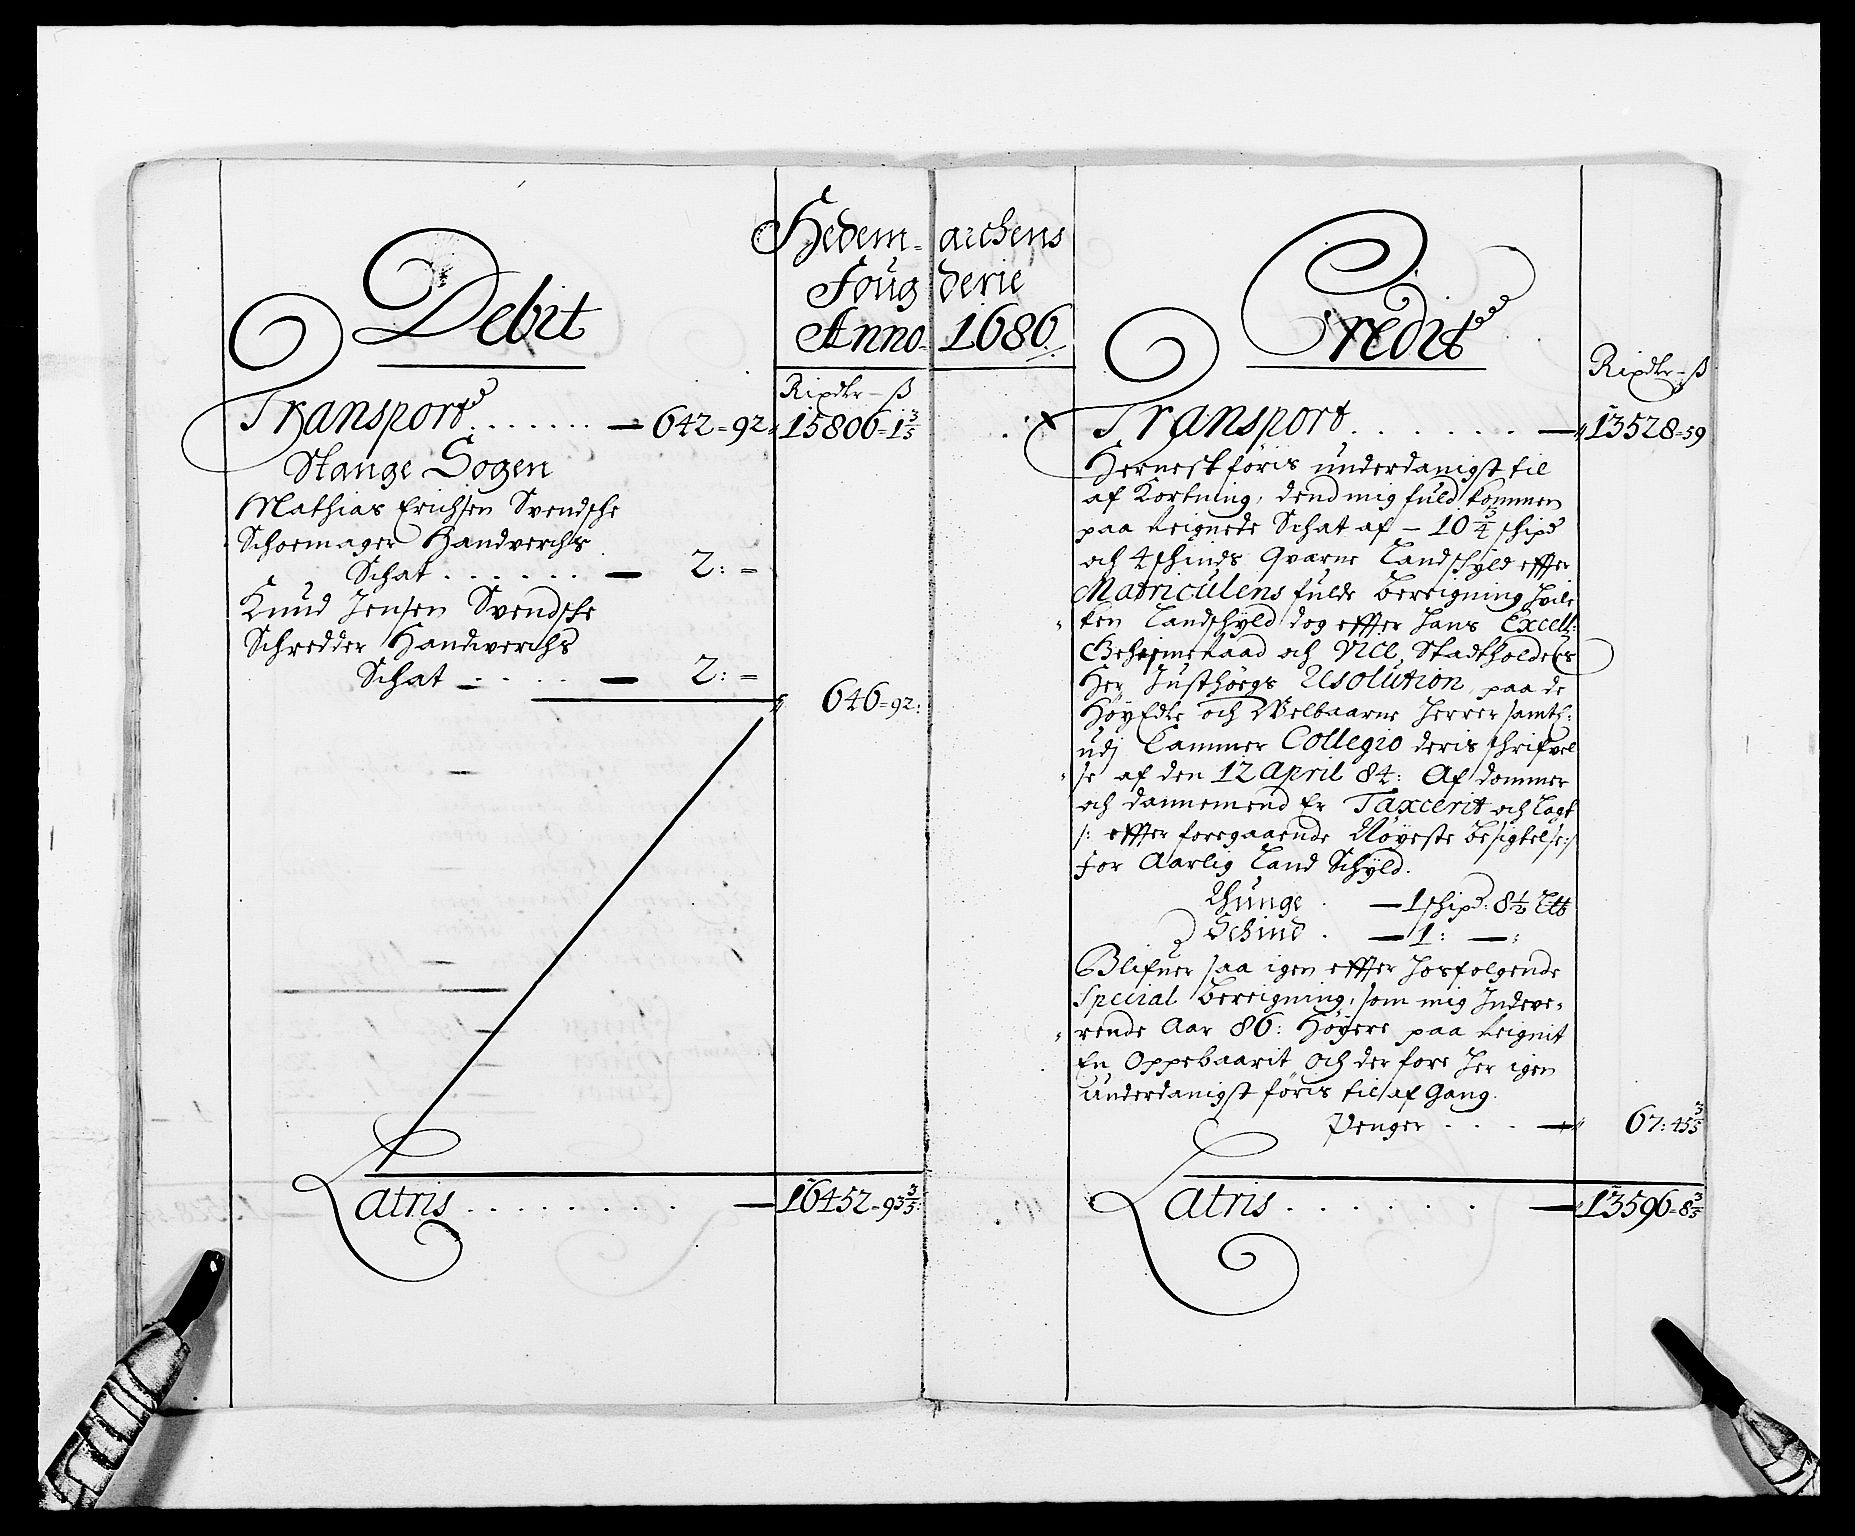 Hedem= archens
Foug derie
Anno 1686
Debit
Rixdlr – ß
Transport . . . . . . . — 642=92 15806=1 3/5
Stange Sogen
Mathias Erichsen Svendsche
Schoemager Handverchs
Schat . . . . . . — 2: =
Knud Jensen Svendsche
Schredder Handwerchs
Schat . . . . — 2: =
646=92:
Latris . . . . . . . . — 16452=93 3/5:
Credit
Rixdlr – ß
Transport . . . . . . — 13528=59
Hernest føris underdanigst til
af Kortning, dend mig fuld kommen
paa reignede Schat af – 10 3/4 schipd
och 4 schinds Qvarne Landschyld effter
Matriculens fulde bereigning hvil
ken Landschyld dog effter hans Excell:
Geheimeraad och Vice Stadtholders
Her Justhøegs Resolution, paa de
HøyEdle och Velbaarne Herrer samtl:
udj Cammer Collegio deris schrifvel
se af den 12 April 84: Af dommer
och dannemend Er Taxcerit och Lagt
/: effter foregaaende Nøyeste besigtelse:/
for Aarlig Land Schyld.
Thunge . — 1 schipd: 8 1/2 Ltb
Schind . — 1: — :
Blifver saa igen effter hosfolgende
Special bereigning, som mig Indeve-
rende Aar 86: Høyere paa reignit
En Oppebaarit, och der fore her igen
underdanigst føris til af Gang.
Penger . . . . — 67: 45 3/5
Latris . . . . . . — 13596=8 3/5